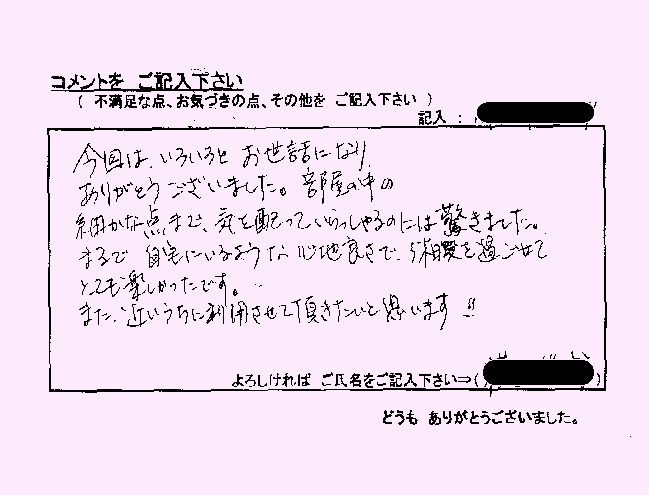 コメントを ご記入下さい
( 不満足な点、お気づきの点、その他を ご記入下さい )
記入 :
今回は、いろいろと お世話になり、
ありがとうございました。部屋の中の
細かな点まで、気を配っていらっしゃるのには驚きました。
まるで 自宅にいるような 心地良さで、 を過ごせて
とても楽しかったです。
また、近いうちに利用させて頂きたいと思います!!
よろしければ ご氏名をご記入下さい⇒( )
どうも ありがとうございました。